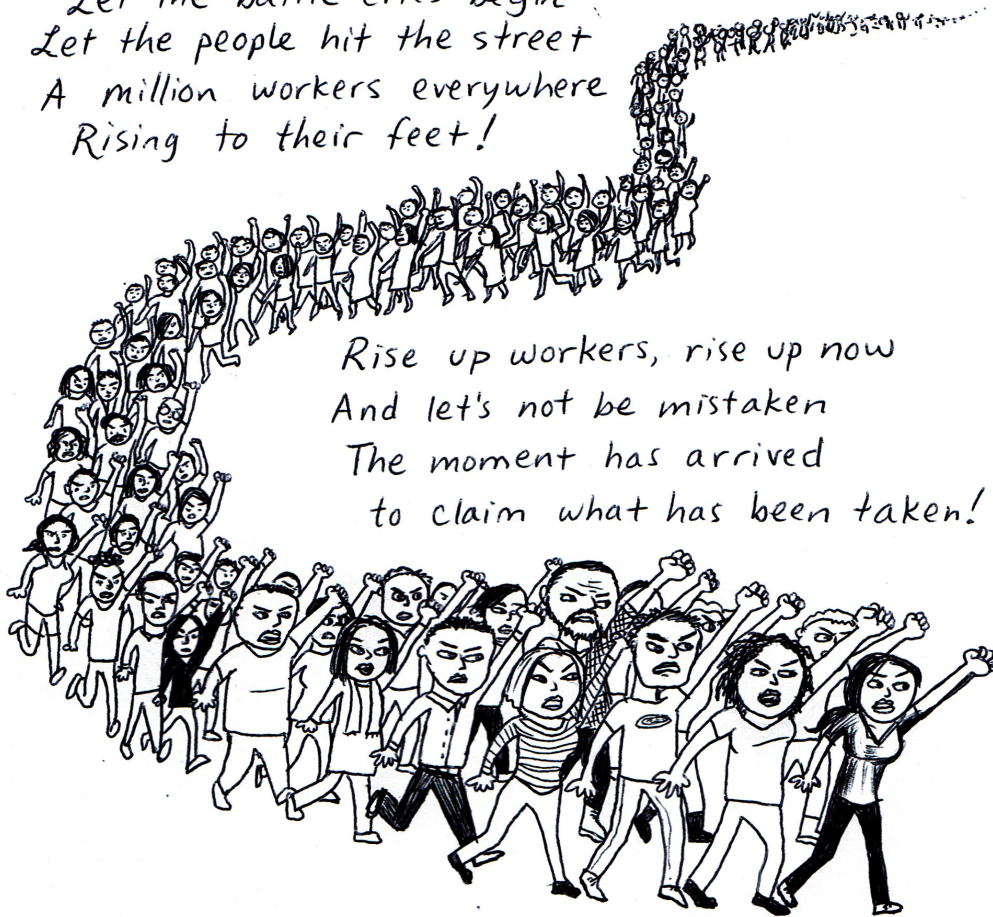 Let the battle cries begin
Let the people hit the street
A million workers everywhere
Rising to their feet!
Rise up workers, rise up now
And let's not be mistaken
The moment has arrived
to claim what has been taken!